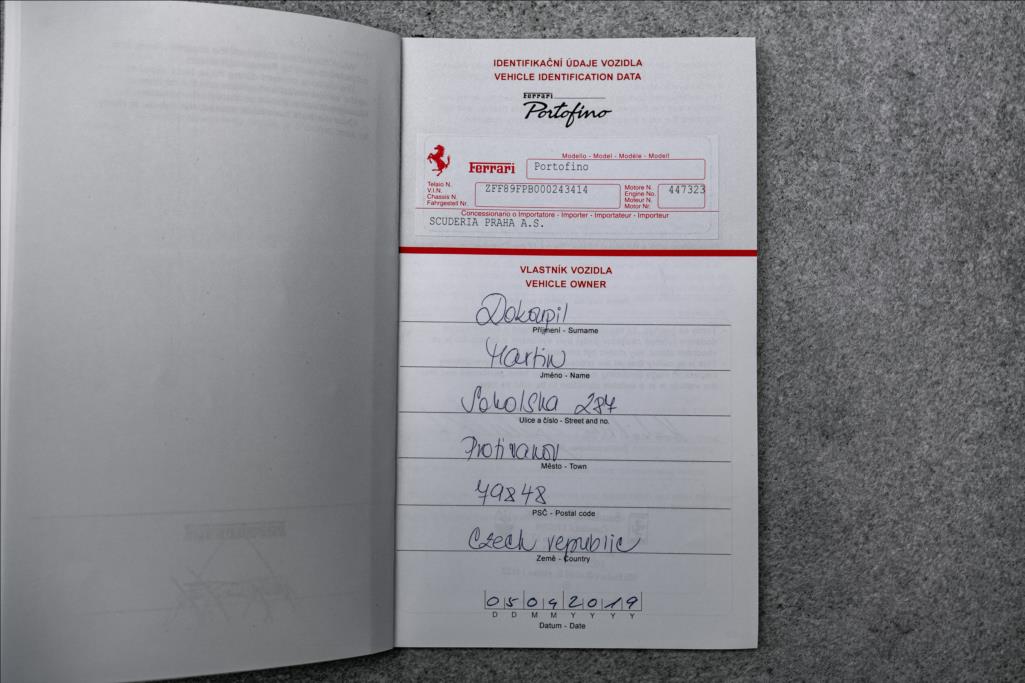 IDENTIFIKAČNÍ ÚDAJE VOZIDLA
VEHICLE IDENTIFICATION DATA
Ferrari
Portofino
Modello - Model - Modèle - Modell
Ferrari
Portofino
Telaio N.
V.I.N.
Chassis N.
Fahrgestell Nr.
ZFF89FPB000243414
Motore N.
Engine No.
Moteur N.
Motor Nr.
447323
Concessionario o Importatore - Importer - Importateur - Importeur
SCUDERIA PRAHA A.S.
VLASTNÍK VOZIDLA
VEHICLE OWNER
Dokoupil
Příjmení - Surname
Martin
Jméno - Name
Sokolska 287
Ulice a číslo - Street and no.
Protivanov
Město - Town
79848
PSČ - Postal code
Czech republic
Země - Country
05 09 2019
D D M M Y Y Y Y
Datum - Date